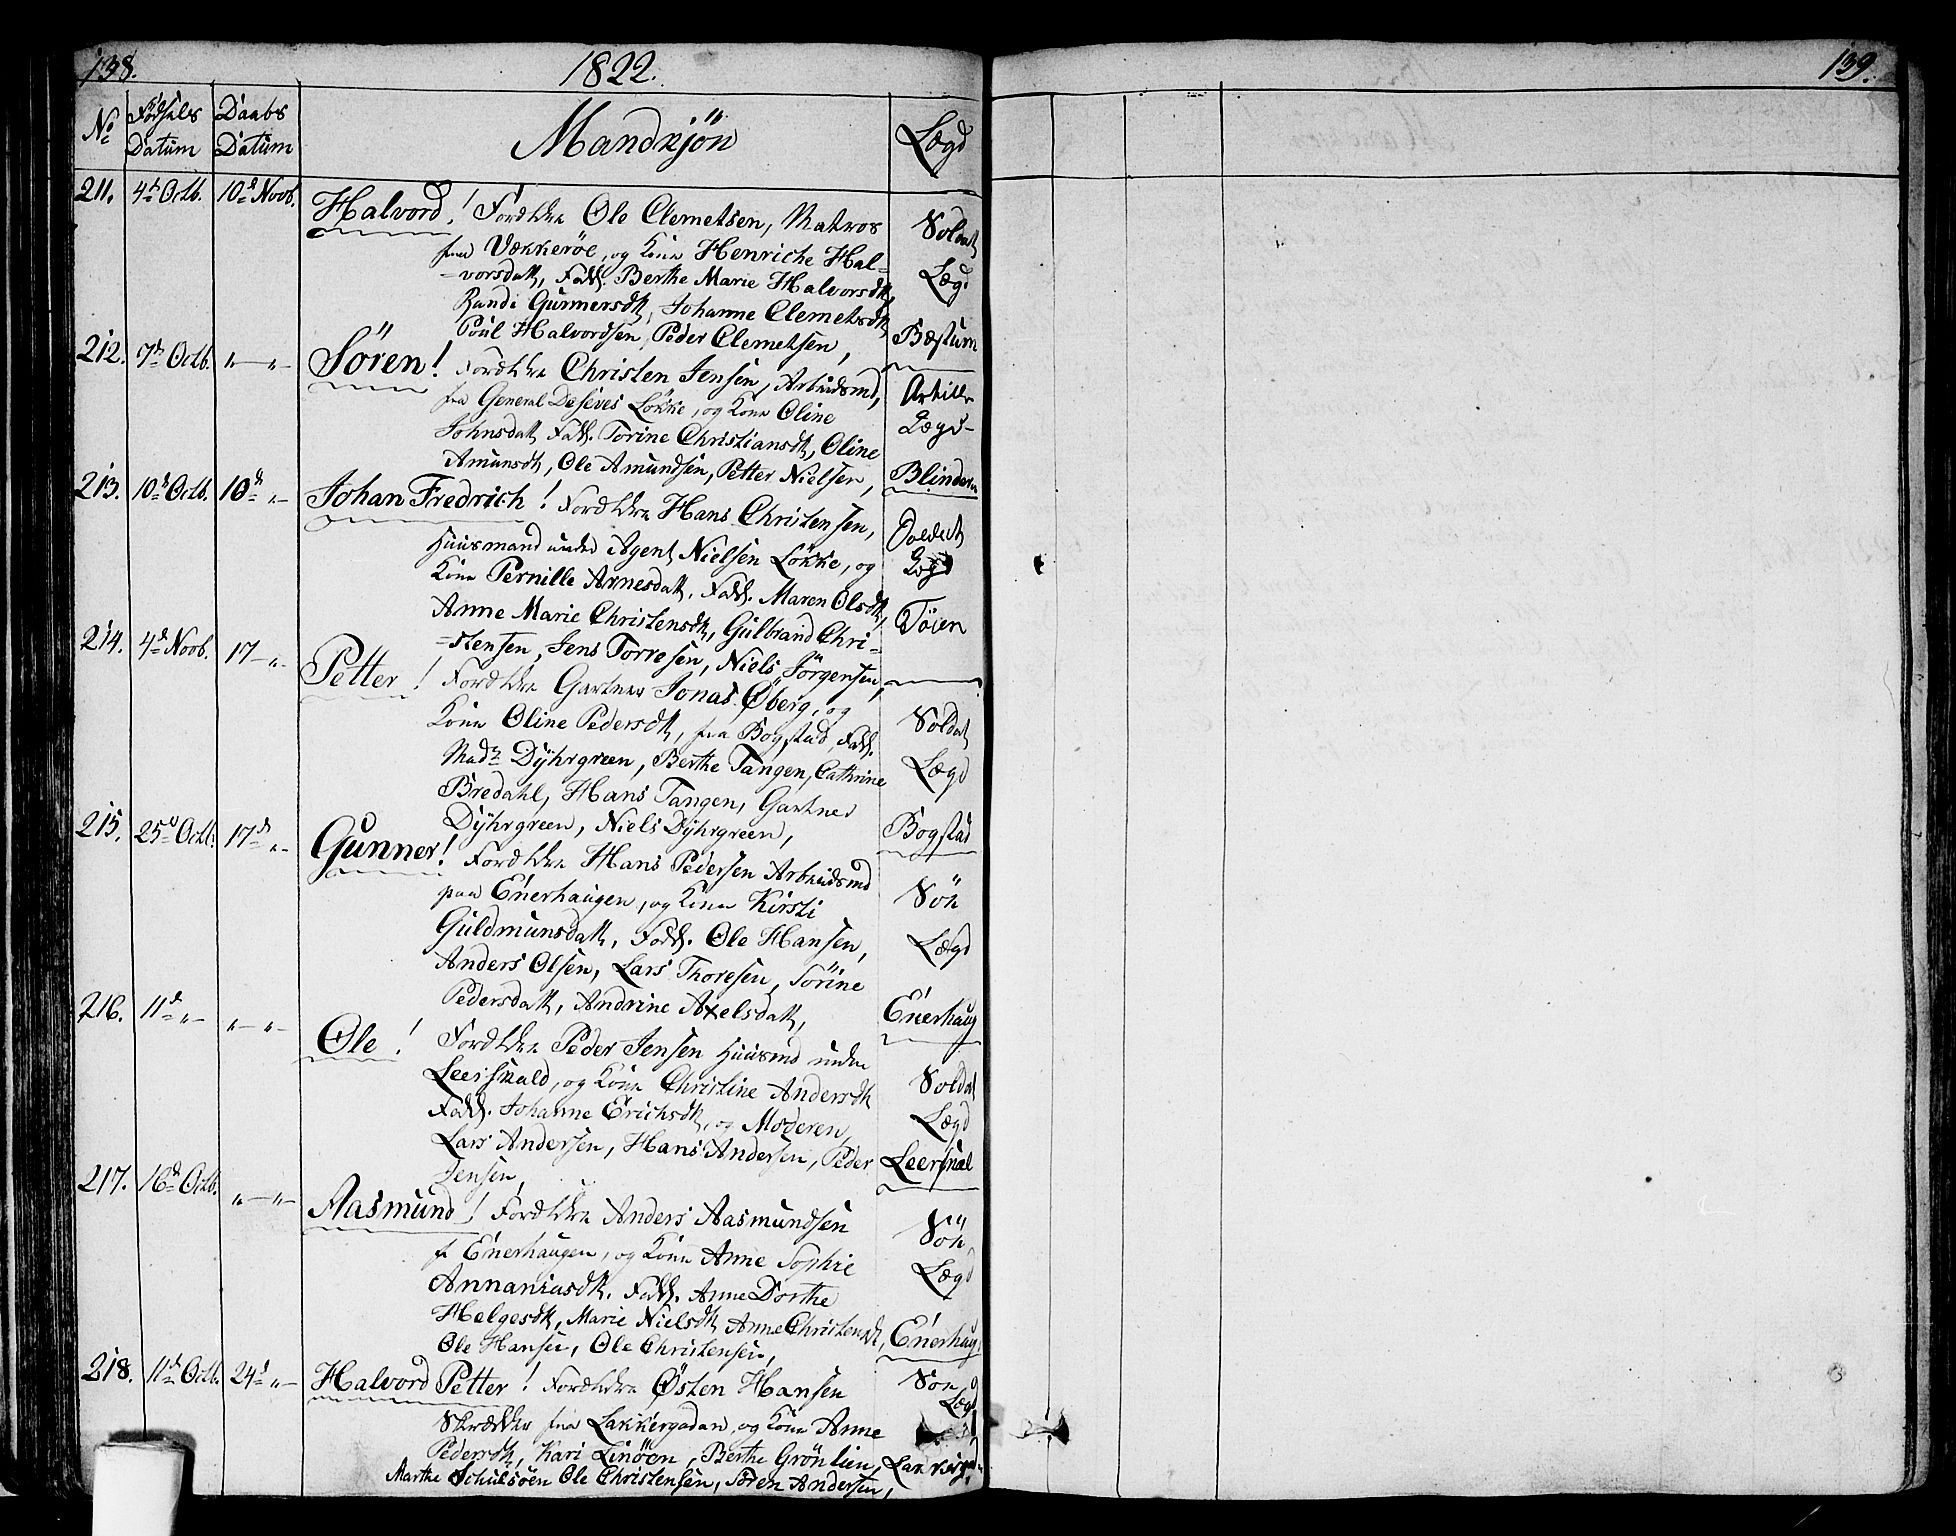 138.
1822.
139.
No Födsels Datum Daabs Datum Mandkjön Lægd
211. 4de Octb. 10de Novb. Halvord! Forældre Ole Clemetsen, Matros
fra Vækkeröe, og Kone Henriche Hal=
=vorsdatt, Fadd. Berthe Marie Halvorsdtt,
Randi Gunnersdtt, Johanne Clemetsdtt
Poul Halvordsen, Peder Clemetsen,
Soldat
Lægd
Bæstum
212. 7de Octb. „—„— Sören! Forældre Christen Jensen, Arbeidsmd,
fra General De Seves Lökke, og Kone Oline
Johnsdatt, Fadd. Torine Christiansdtt, Oline
Amunsdtt, Ole Amundsen, Petter Nielsen,
Artille
Lægd-
Blindern
213. 10de Octb. 10de „— Johan Fredrich! Forældre Hans Christensen,
Huusmand under Agent Nielsen Lökke, og
Kone Pernille Arnesdatt. Fadd. Maren Olsdtt,
Anne Marie Christensdtt, Gulbrand Chri=
=stensen, Jens Torresen, Niels Jörgensen,
Soldat
Lægd
Töien
214. 4de Novb. 17—„— Petter! Forældre Gartner Jonas Øberg, og
Kone Oline Pedersdtt, fra Bogstad, Fadd.
Madm Dÿhrgreen, Berthe Tangen, Cathrine
Bredahl, Hans Tangen, Gartner
Dÿhrgreen, Niels Dÿhrgreen,
Soldat
Lægd
Bogstad
215. 25de Octb. 17de „— Gunner! Forældre Hans Pedersen Arbeidsmd
paa Enerhaugen, og Kone Kirsti
Guldmunsdatt, Fadd. Ole Hansen,
Anders Olsen, Lars Thoresen, Sörine
Pedersdatt, Andrine Axelsdatt,
Söe
Lægd
Enerhaug
216. 11de „— „—„— Ole! Forældre Peder Jensen Huusmd under
Leerskald, og Kone Christine Andersdtt
Fadd. Johanne Erichsdtt, og Moderen,
Lars Andersen, Hans Andersen, Peder
Jensen,
Soldat
Lægd
Leerskal
217. 16de Octb. „—„— Aasmund! Forældre Anders Aasmundsen
f Enerhaugen, og Kone Anne Sophie
Annaniasdtt. Fadd. Anne Dorthe
Helgesdtt, Marie Nielsdtt, Anne Christensdtt,
Ole Hansen, Ole Christensen,
Söe
Lægd
Enerhaug
218. 11de Octb. 24de „— Halvord Petter! Forældre Østen Hansen
Skrædder fra Lakkegadan, og Kone Anne
Pedersdtt, Kari Linöen, Berthe Grönlien,
Marthe Schulsöen Ole Christensen, Sören Andersen,
Söe
Lægd